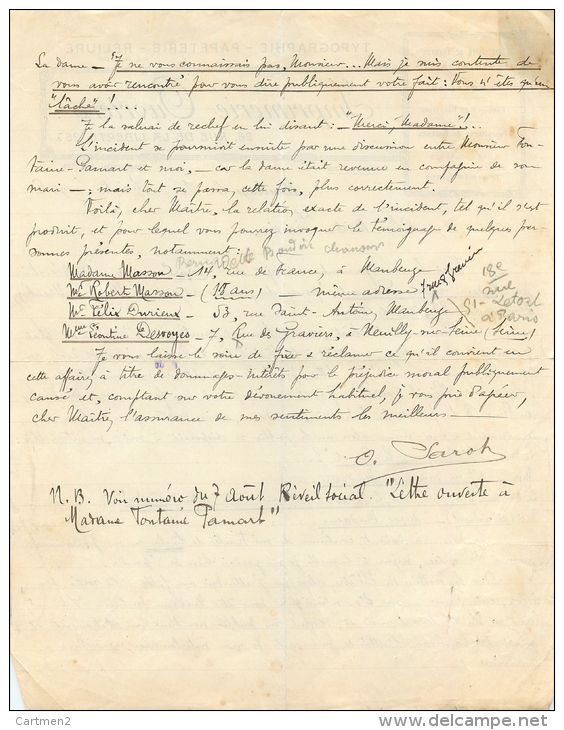 La dame – "Je ne vous connaissais pas, Monsieur... Mais je suis contente de
vous avoir rencontré pour vous dire publiquement votre fait : Vous n'êtes qu'un
"lâche"!....
Je la saluai de rechef en lui disant : "Merci, Madame"!...
L'incident se poursuivit ensuite par une discussion entre Monsieur Fon-
taine-Pamart et moi, – car la dame était revenue en compagnie de son
mari – ; mais tout se passa, cette fois, plus correctement.
Voilà, cher Maître, la relation exacte de l'incident, tel qu'il s'est
produit, et pour lequel vous pourrez invoquer le témoignage de quelques per-
sonnes présentes, notamment :
Baudoin chanson
Madame Masson – 14 rue de France, à Maubeuge
Mr Robert Masson – (19 ans) – même adresse
Mr Félix Durieux – 53, rue Saint-Antoine, Maubeuge
Mme Léontine Desvoyes – 7, Rue des Graviers, à Neuilly-sur-Seine (Seine)
18e
rue
51 -
à Paris
Je vous laisse le soin de fixer & réclamer ce qu'il convient en
cette affaire, à titre de dommages-intérêts pour le préjudice moral publiquement
causé et, comptant sur votre dévouement habituel, je vous prie d'agréer,
cher Maître, l'assurance de mes sentiments les meilleurs –
O.
N.B. Voir numéro du 7 Août Réveil social. "Lettre ouverte à
Madame Fontaine Pamart"
TYPOGRAPHIE - PAPETERIE - RELIURE
Imprimerie
Cartmen2
www.delcampe.net